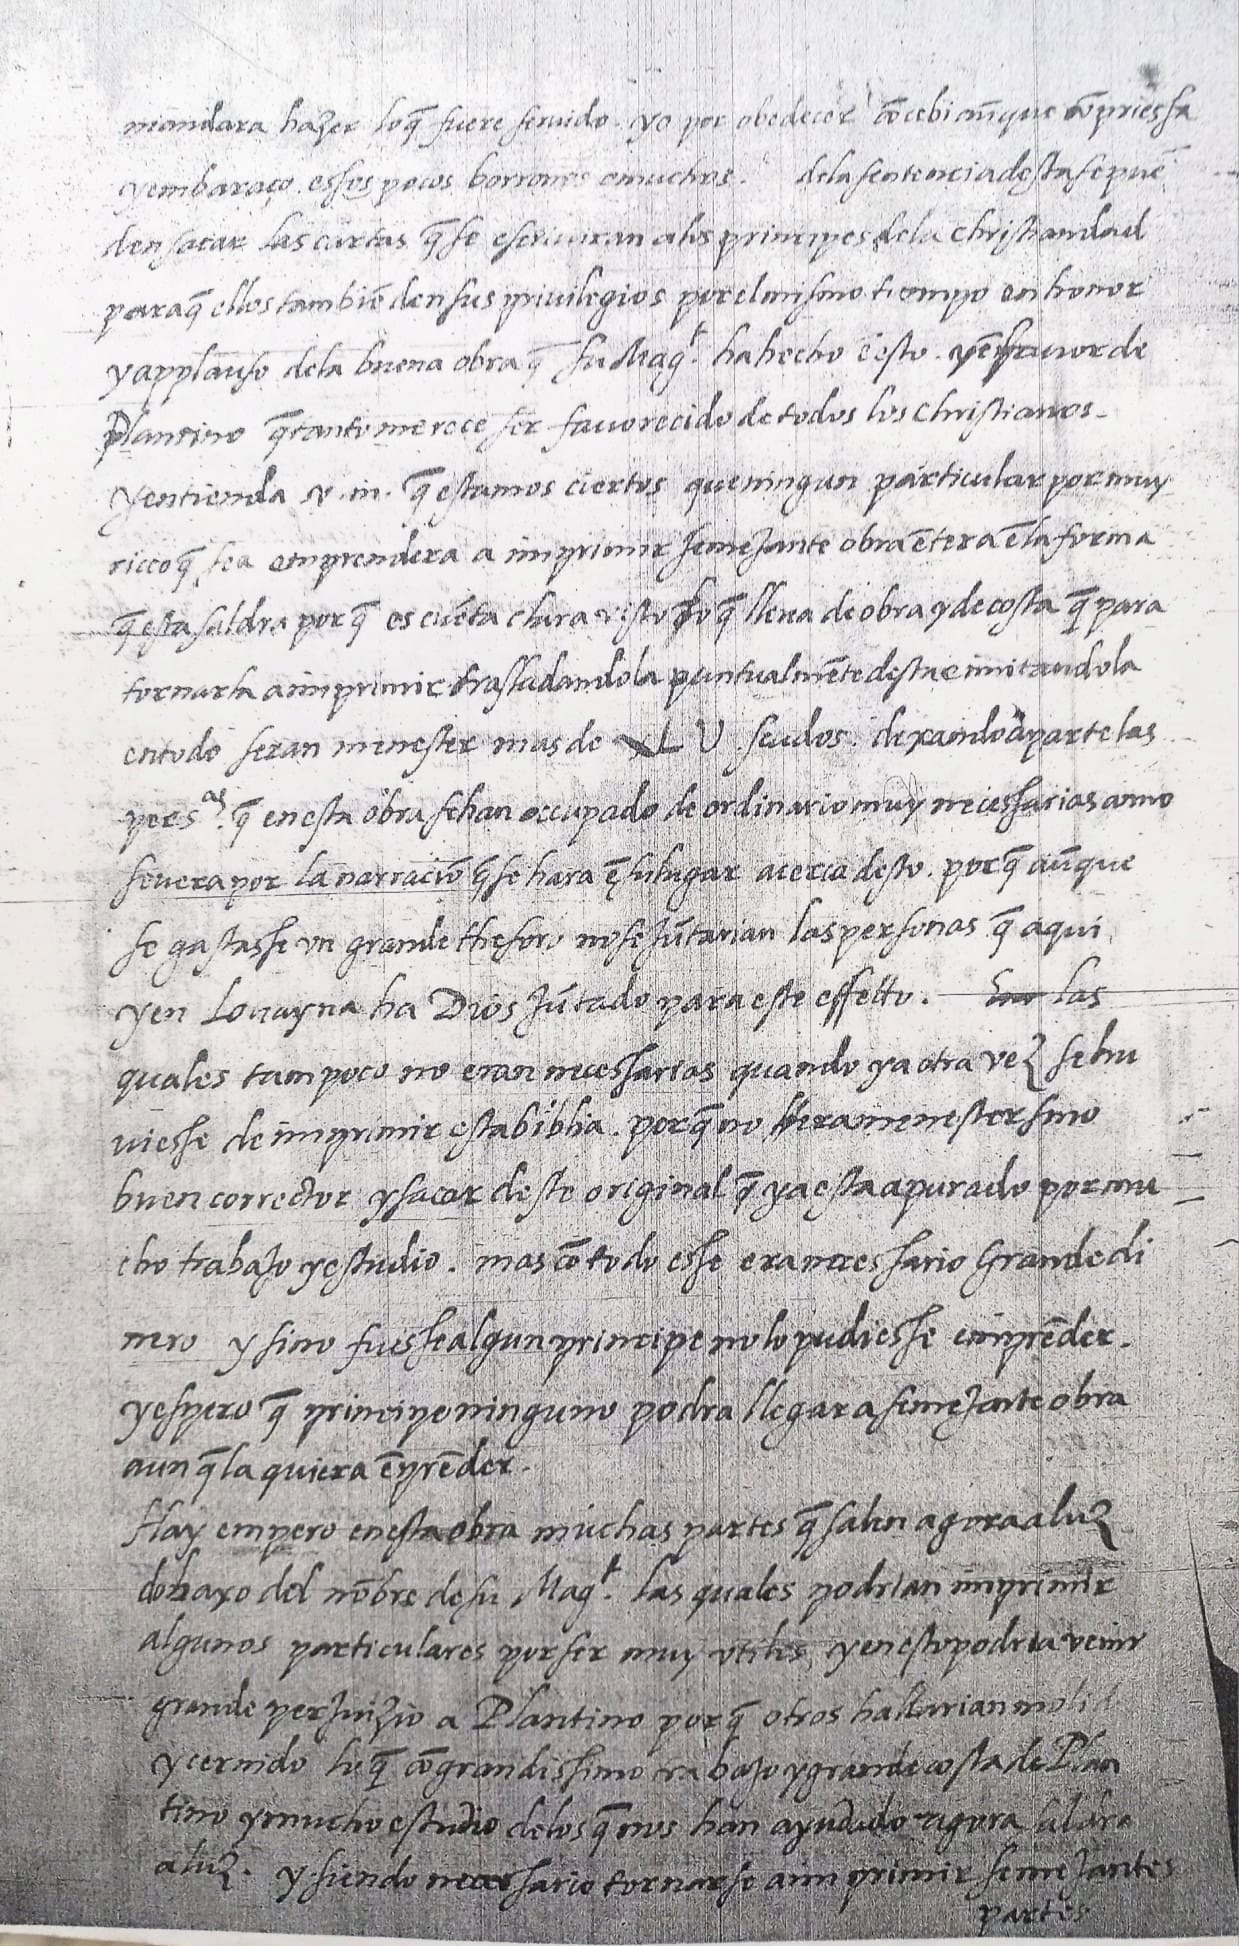 mandara hazer loq̃ fuere seruido. yo por obedecer cõcebi aũque cõ priessa
y embaraço essos pocos borrones o muchos. dela sentencia desta se pue
den sacar las cartas q̃ se escriuiran alos principes dela christiandad
paraq̃ ellos tambiẽ den sus priuilegios por el mismo tiempo en honor
y applauso dela buena obra q̃ su Magᵗ. ha hecho ẽ esto. y ẽ fauor de
Plantino q̃ tanto merece ser fauorecido de todos los christianos.
y entienda v.m. q̃ estamos ciertos que ningun particular por muy
ricco q̃ sea emprendera a imprimir semejante obra ẽtera ẽ la forma
q̃ esta saldra por q̃ es cuẽta clara visto lo q̃ lleua de obra y de costa q̃ para
tornarla a imprimir trasladandola puntualmẽte desta e imitandola
en todo seran menester mas de XL U scudos. dexando aparte las
persᵃˢ. q̃ en esta obra se han occupado de ordinario muy necessarias como
se vera por la narraciõ q̃ se hara ẽ su lugar acerca desto. porq̃ aũque
se gastasse vn grande thesoro no se jũtarian las personas q̃ aqui
y en Louayna ha Dios jũtado para este effetto. las
quales tampoco no eran necessarias quando ya otra vez se hu
uiesse de imprimir esta biblia. porq̃ no era menester sino
buen corrector y sacar deste original q̃ ya esta apurado por mu
cho trabajo y estudio. mas cõ todo esse era necessario Grande di
nero y sino fuesse algun principe no lo pudiesse emprẽder.
y espero q̃ principe ninguno podra llegar a semejante obra
aun q̃ la quiera ẽprẽder.
Hay empero en esta obra muchas partes q̃ salen agora a luz
debaxo del nõbre de su Magᵗ. las quales podrian imprimir
algunos particulares por ser muy vtiles y en esto podria venir
grande perjuizio a Plantino porq̃ otros hallarian molid
y cernido lo q̃ cõ grandissimo trabajo y grande costa de Plan
tino y mucho estudio delos q̃ nos han ayudado agora saldra
a luz. y siendo necessario tornarse a imprimir semejantes
partes